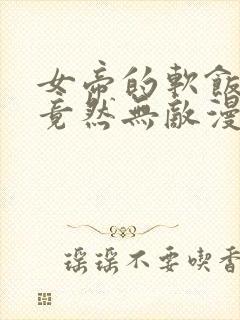 女帝的軟飯
竟然無敵漫
瑶瑶不要喫香